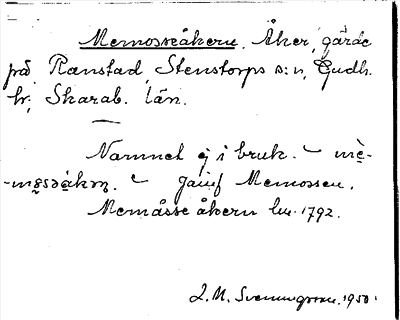 Memosseåkern. Åker, gärde
på Ranstad, Stenstorps s:n, Gudh.
hr; Skarab. län.
Namnet ej i bruk. – mè-
Jämf Memossen.
Memåsse åkern lm. 1792.
1950.